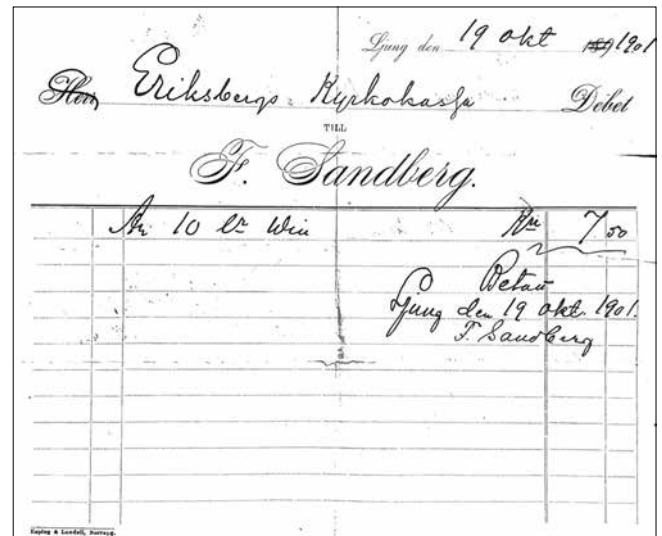 Ljung den 19 okt 1901
Herr Eriksbergs Kyrkokassa Debet
TILL
F. Sandberg.
An 10 Lr Win Kr 7,50
Betalt
Ljung den 19 okt. 1901.
F. Sandberg